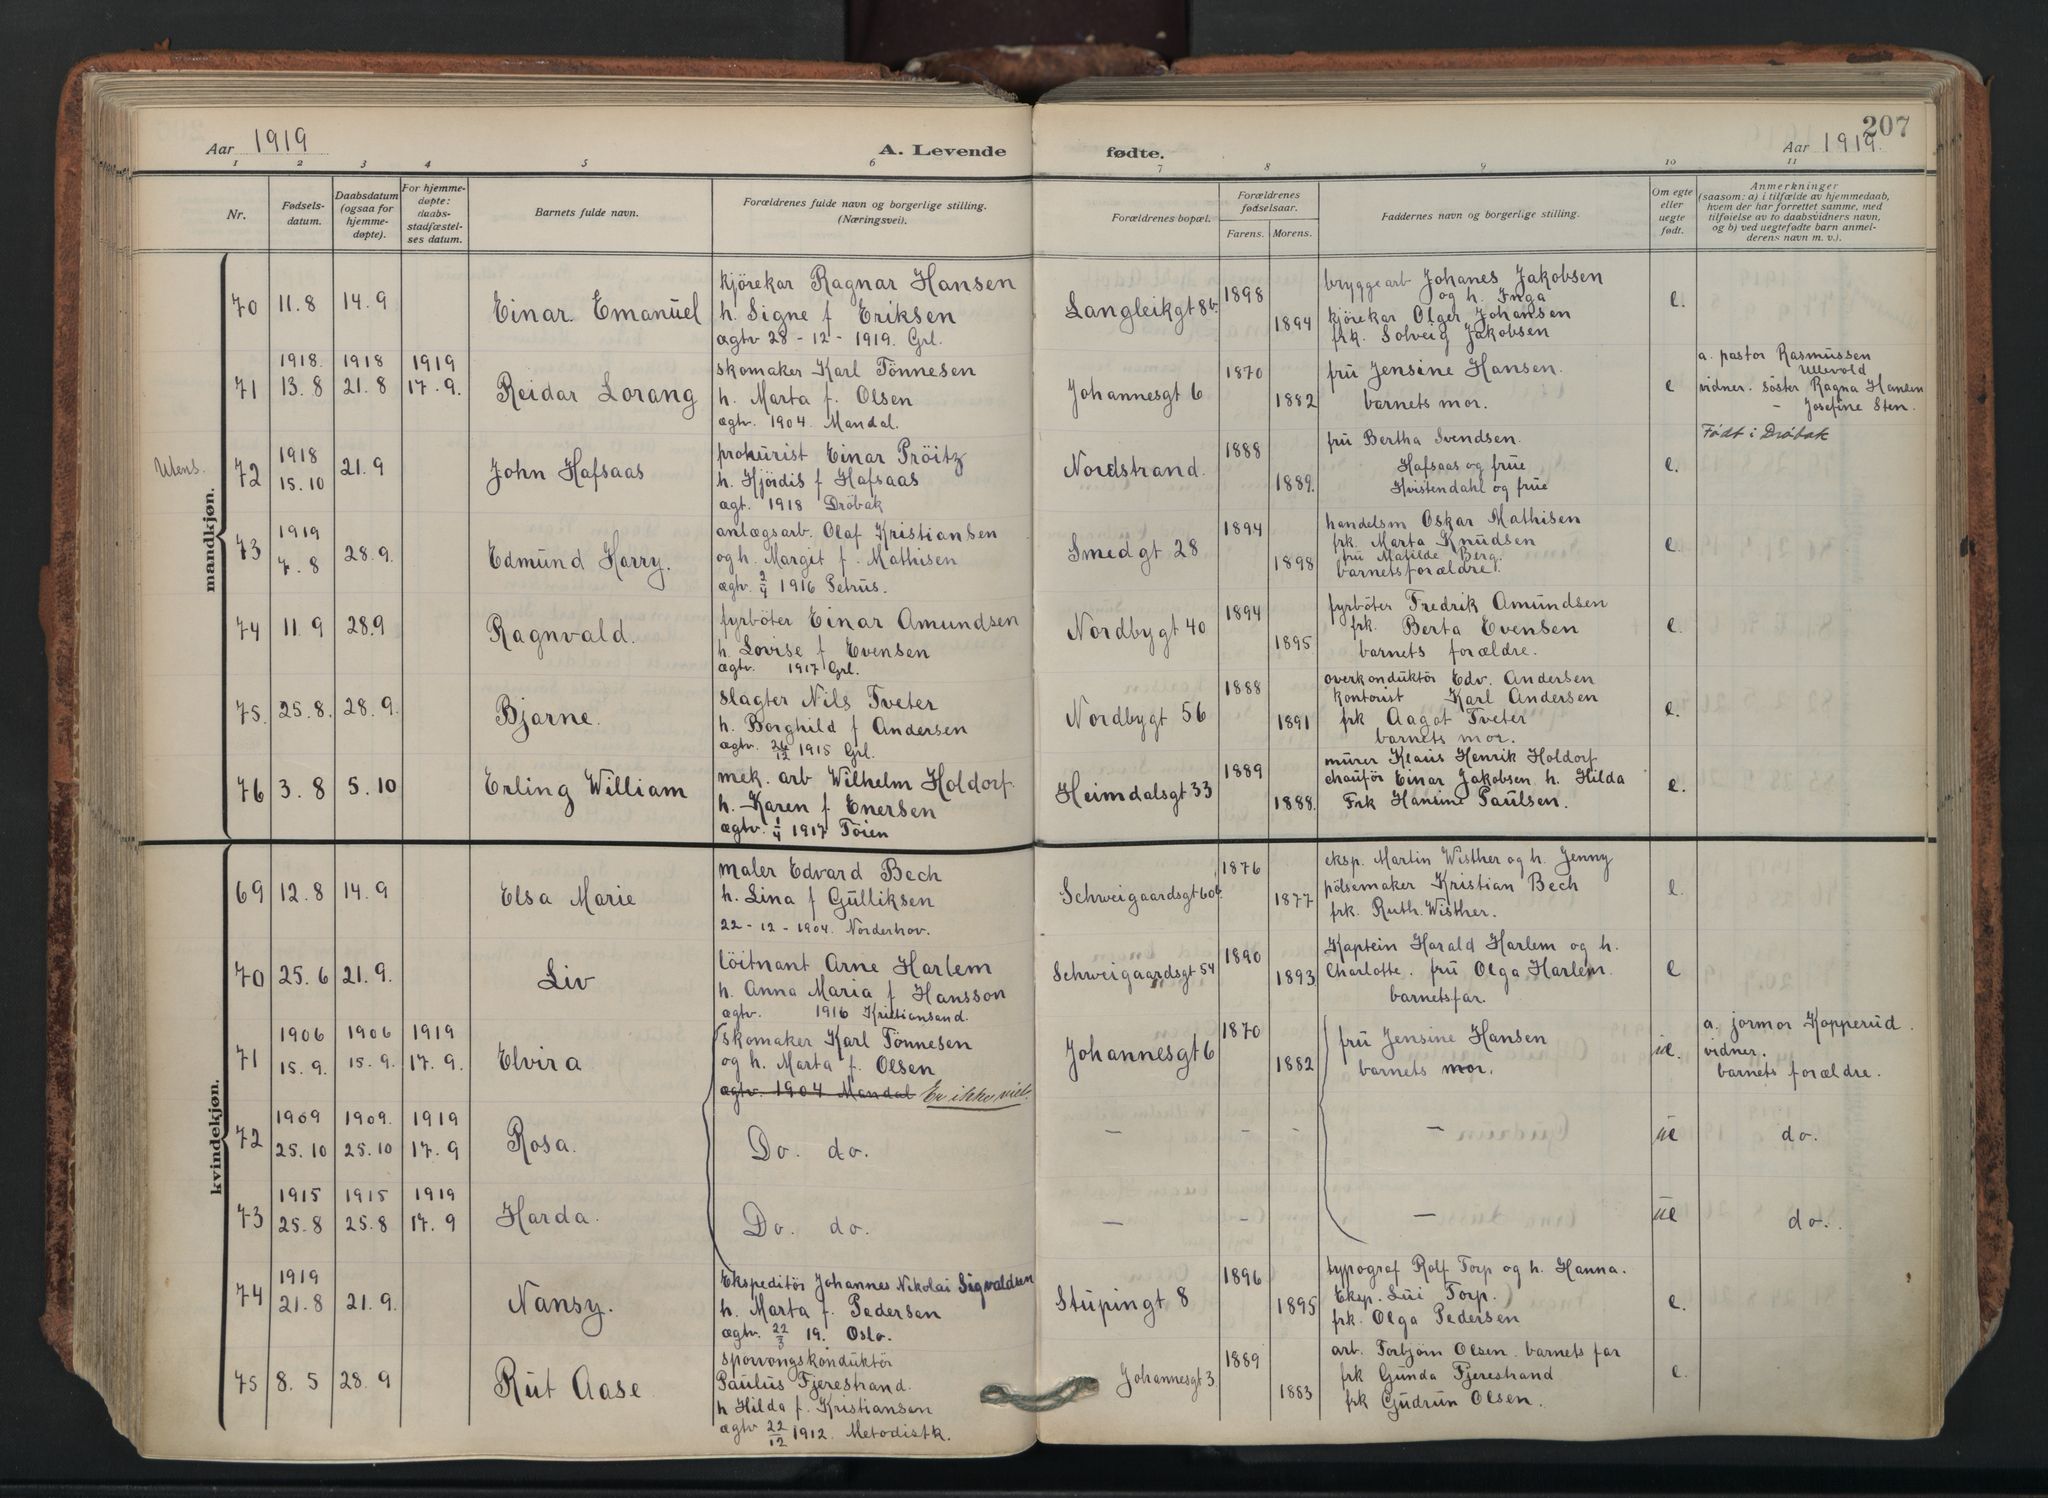 207
Aar 1919
A. Levende fødte.
Aar 1919.
1 2 3 4 5 6 7 8 9 10 11
Nr.
Fødsels-
datum.
Daabsdatum
(ogsaa for
hjemme-
døpte).
For hjemme-
døpte:
daabs-
stadfæstel-
ses datum.
Barnets fulde navn.
Forældrenes fulde navn og borgerlige stilling.
(Næringsvei).
Forældrenes bopæl.
Forældrenes
fødselsaar.
Farens. Morens.
Faddernes navn og borgerlige stilling.
Om egte
eller
uegte
født.
Anmerkninger
(saasom: a) i tilfælde av hjemmedaab,
hvem der har forrettet samme, med
tilføielse av to daabsvidners navn,
og b) ved uegtefødte barn anmel-
derens navn m. v.).
mandkjøn.
70 11.8 14.9 Einar Emanuel
kjörekar Ragnar Hansen
h. Signe f Eriksen
ægtv 28-12-1919. Grl.
Langleikgt 8b. 1898 1894
bryggearb Johanes Jakobsen
og h. Inga
kjörekar Olger Johansen
frk. Solveig Jakobsen
e.
71 1918. 13.8 1918 21.8 1919 17.9. Reidar Lorang
skomaker Karl Tönnesen
h. Marta f. Olsen
ægtv. 1904. Mandal.
Johannesgt 6 1870 1882
frü Jensine Hansen.
barnets mor.
e
a. pastor Rasmüssen
Ullevold
vidner. söster Ragna Hansen
- Josefine Sten.
Utens.
72 1918 15.10 21.9 John Hafsaas
prokürist Einar Pröitz
h. Hjördis f Hafsaas
ægt. 1918 Dröbak
Nordstrand. 1888 1889.
frü Bertha Svendsen.
Hafsaas og früe
Hvistendahl og früe
e.
Født i Drøbak
73 1919 7.8 28.9. Edmünd Harry.
anlægsarb. Olaf Kristiansen
og h. Margit f. Mathisen
ægtv 2/4 1916 Petrüs.
Smedgt 28 1894 1898
handelsm Oskar Mathisen
frk. Marta Knüdsen
frü Matilde Berg.
barnets forældre.
e.
74 11.9 28.9 Ragnvald.
fyrböter Einar Amundsen
h. Lovise f Evensen
ægtv. 1917 Grl.
Nordbygt 40 1894 1895
fyrböter Fredrik Amündsen
frk. Berta Evensen
barnets forældre.
e.
75. 25.8. 28.9. Bjarne.
slagter Nils Tveter
h. Borghild f Andersen
ægtv. 26/12 1915 Grl.
Nordbygt 56 1888 1891
overkondüktör Edv. Andersen
kontorist Karl Andersen
frk Aagot Tveter
barnets mor.
e.
76 3.8 5.10 Erling William
mek. arb Wilhelm Holdorf
h. Karen f Enersen
ægtv. 1/4 1917 Töien
Heimdalsgt 33 1889 1888.
mürer Klaüs Henrik Holdorf
chaüför Einar Jakobsen h. Hilda
Frk Hansine Paülsen.
e.
kvindekjøn.
69 12.8 14.9 Elsa Marie
maler Edvard Bech
h. Lina f Gülliksen
22-12-1904. Norderhov.
Schweigaardsgt 60b. 1876 1877
eksp. Martin Wisther og h. Jenny
pölsemaker Kristian Bech
frk. Ruth. Wisther.
e.
70 25.6 21.9. Liv
löitnant Arne Harlem
h. Anna Maria f Hansson
ægtv. 1916 Kristiansand.
Schweigaardsgt 54 1890 1893
Kaptein Harald Harlem og h.
Charlotte. frü Olga Harlem.
barnets far.
e
71 1906 15.9. 1906 15.9. 1919 17.9. Elvira
skomaker Karl Tönnesen
og h. Marta f. Olsen
ægtv. 1904 Mandal Er ikke viet.
Johannesgt 6 1870 1882
frü Jensine Hansen
barnets mor.
üe.
a. jormor Kopperüd.
vidner.
barnets forældre.
72 1909 25.10 1909. 25.10 1919 17.9 Rosa.
Do. do.
- - - -
üe
do.
73 1915 25.8 1915 25.8 1919 17.9 Harda.
Do. do.
- - -
üe
do..
74 1919 21.8 21.9. Nansy.
Ekspeditör Johannes Nikolai Sigvaldsen
h. Marta f. Pedersen
ægtv. 22/3 19. Oslo.
Stüpingt 8 1896 1895
typograf Rolf Torp og h. Hanna.
Eksp. Lüi Torp.
frk. Olga Pedersen
e.
75 8.5 28.9 Rüt Aase.
sporvongskondüktör
Paülüs Fjerestrand.
h Hilda f. Kristiansen
ægtv 22/12 1912. Metodistk.
Johannesgt 3. 1889 1883
arb. Torbjörn Olsen. barnets far
frk Günda Fjerestrand
frk Güdrün Olsen.
e.